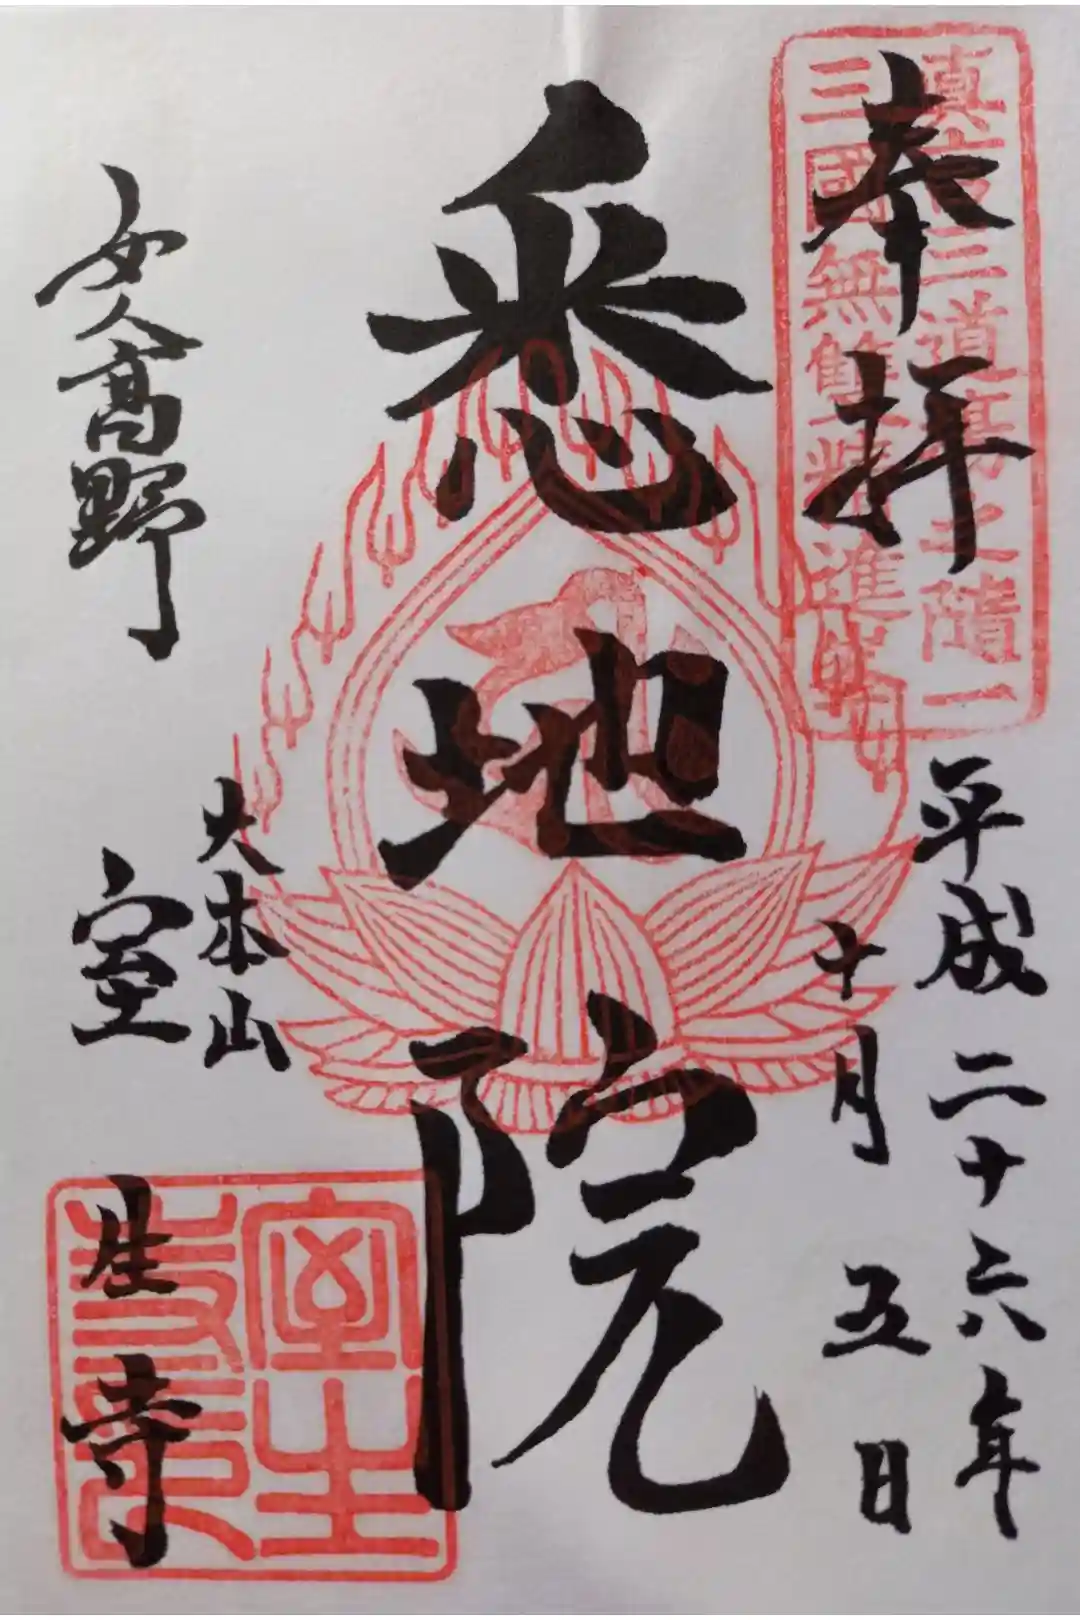 真言三道場之隨一
三國無雙精進
奉拝
平成二十六年
十月五日
悉地院
女人高野
大本山
室生寺
室生
寺印